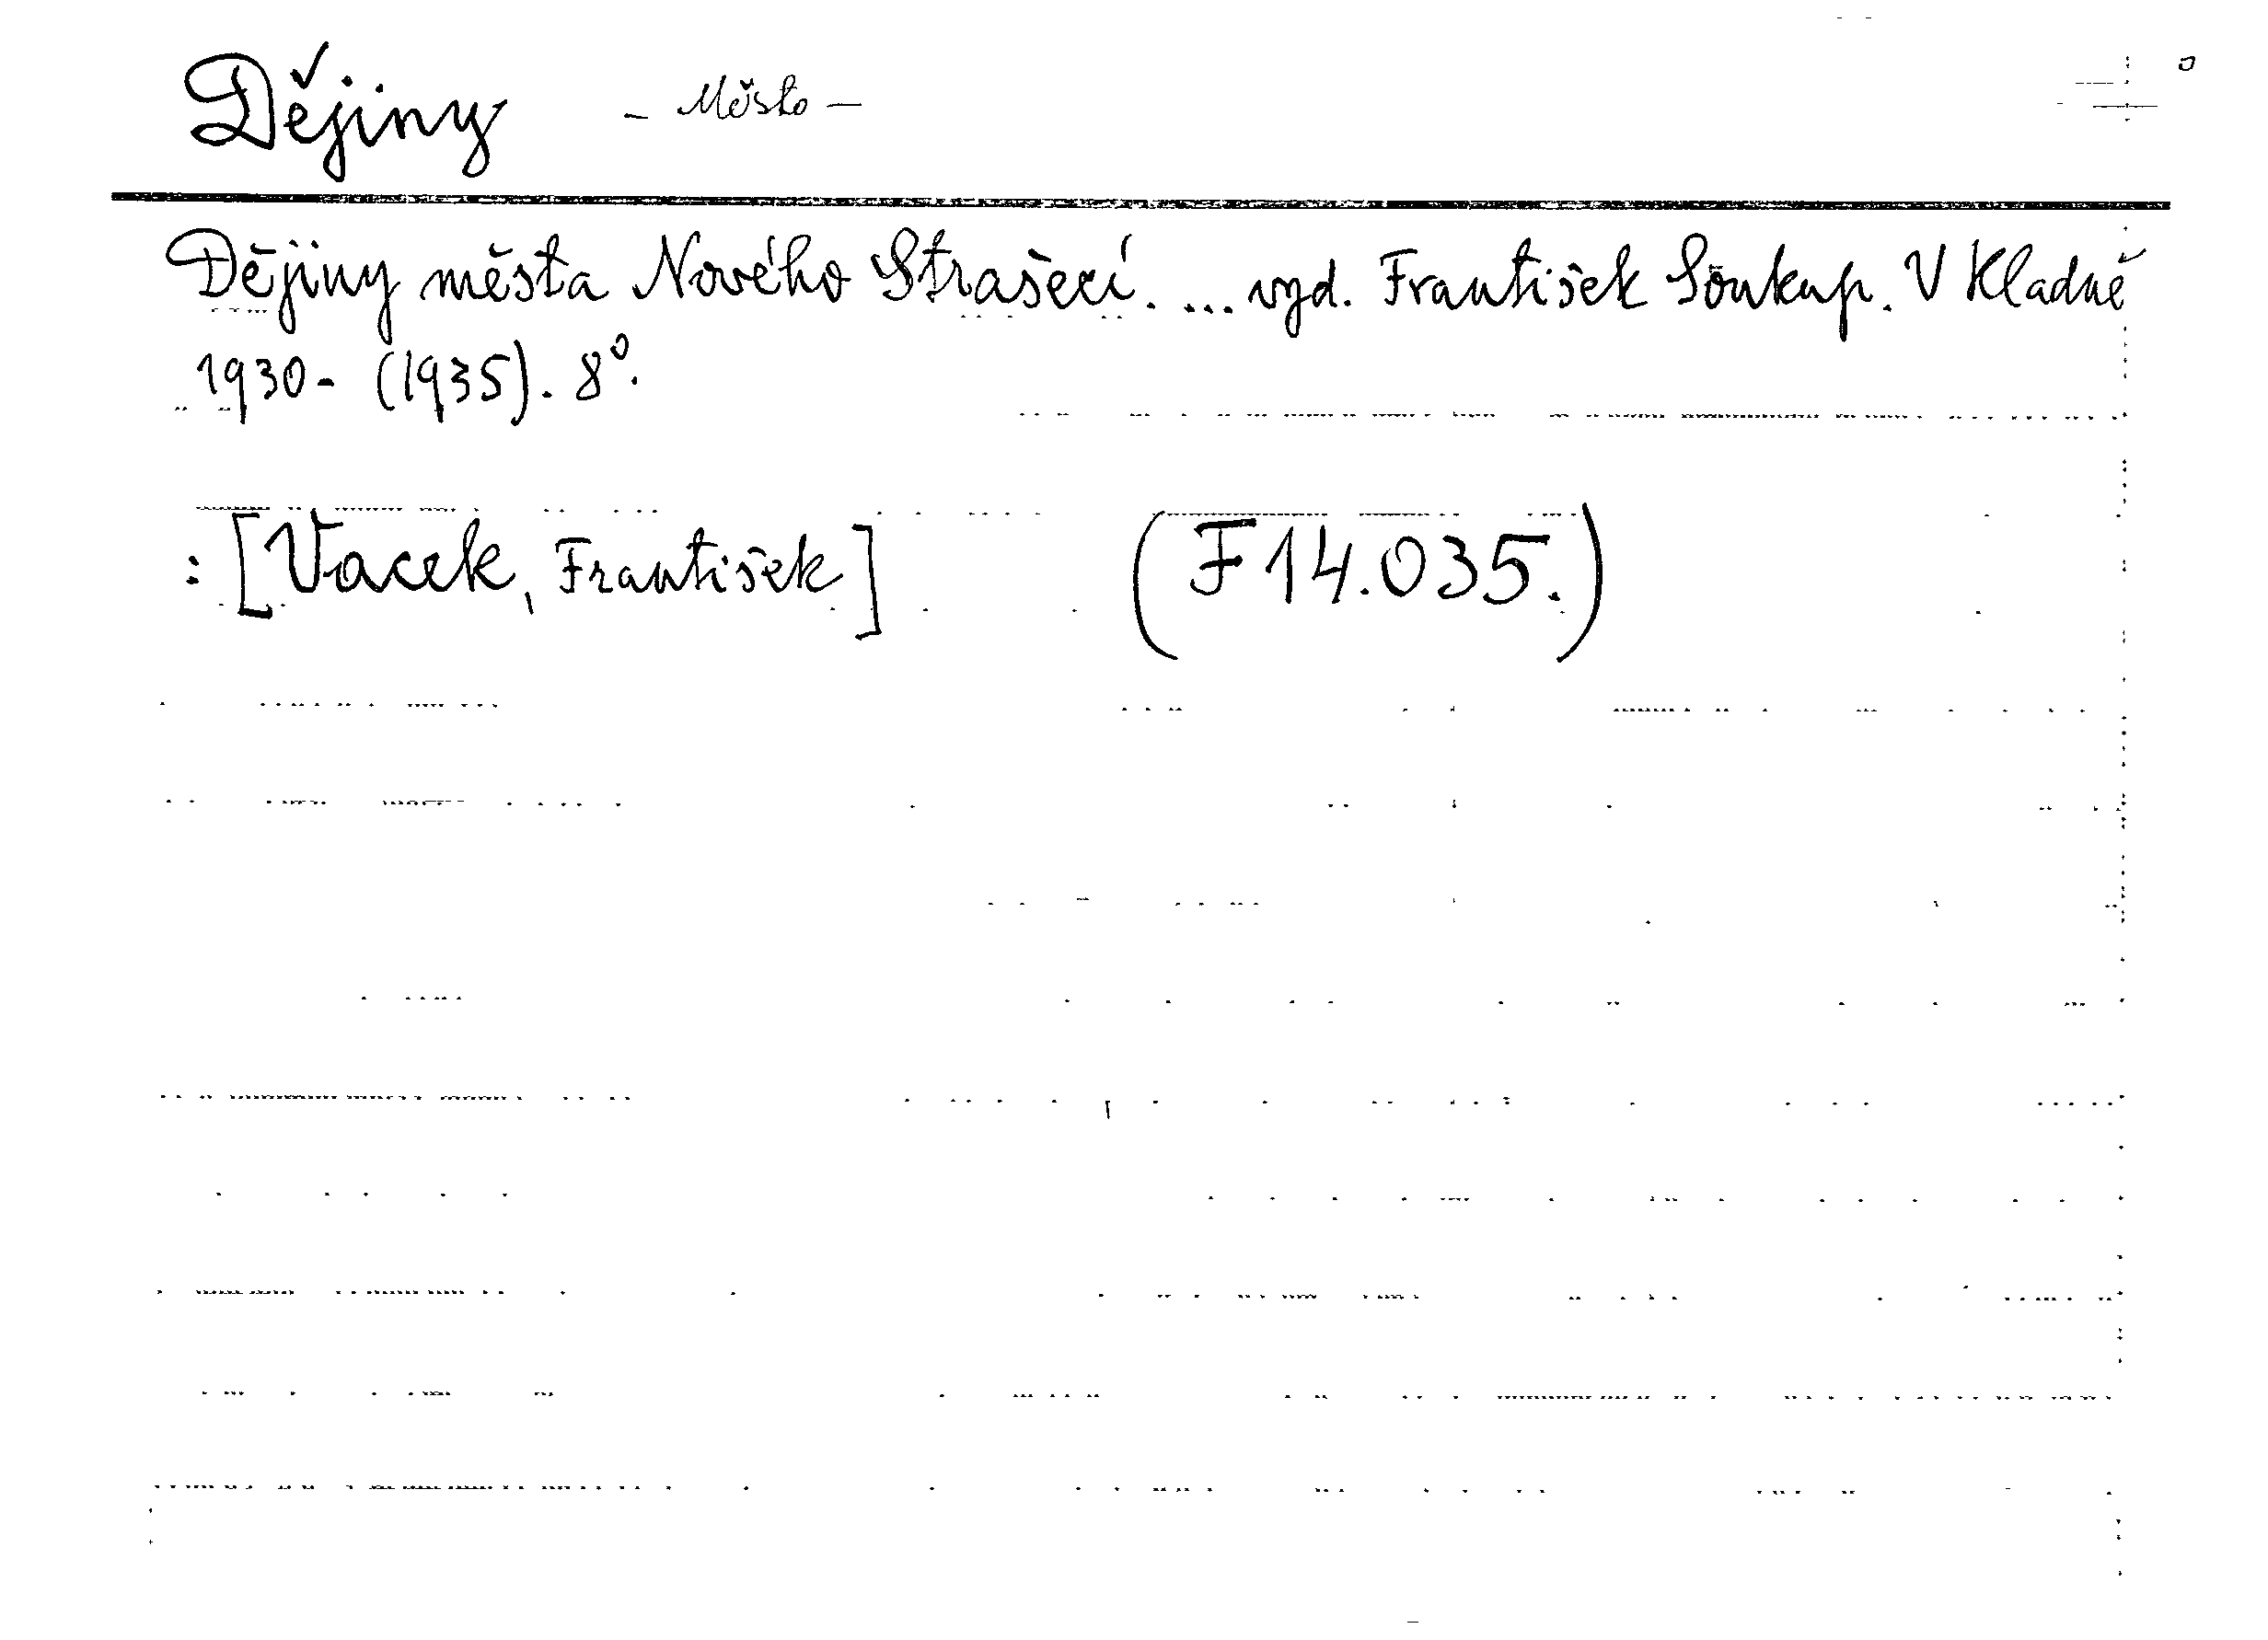 Dějiny - Město -
Dějiny města Nového Strašecí. ... vyd. František Soukup. V Kladně
1930- (1935). 8°.
: [Vacek, František] (F 14.035.)